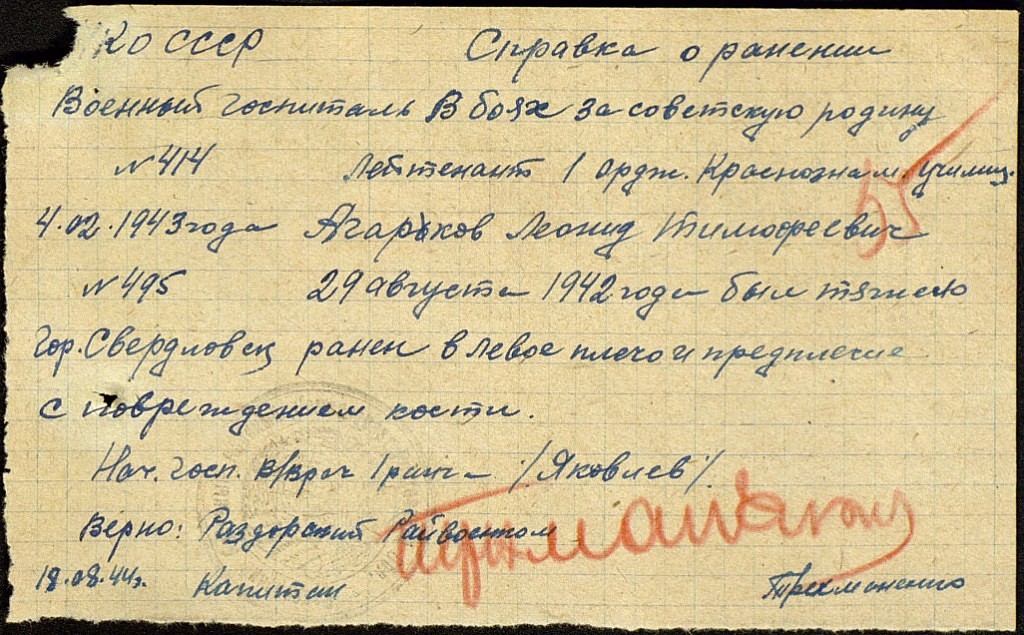 КО СССР Справка о ранении
Военный госпиталь В боях за советскую родину
№ 414 Лейтенант 1 ордж. Краснознам. училищ.
55
4.02.1943 года Агарьков Леонид Тимофеевич
№ 495 29 августа 1942 года был тяжело
гор. Свердловск ранен в левое плечо и предплечие
с повреждением кости.
Нач. госп. в/врач 1 ранга /Яковлев/.
Верно: Раздорский Райвоенком
18.08.44г. Капитан Трехмоненко